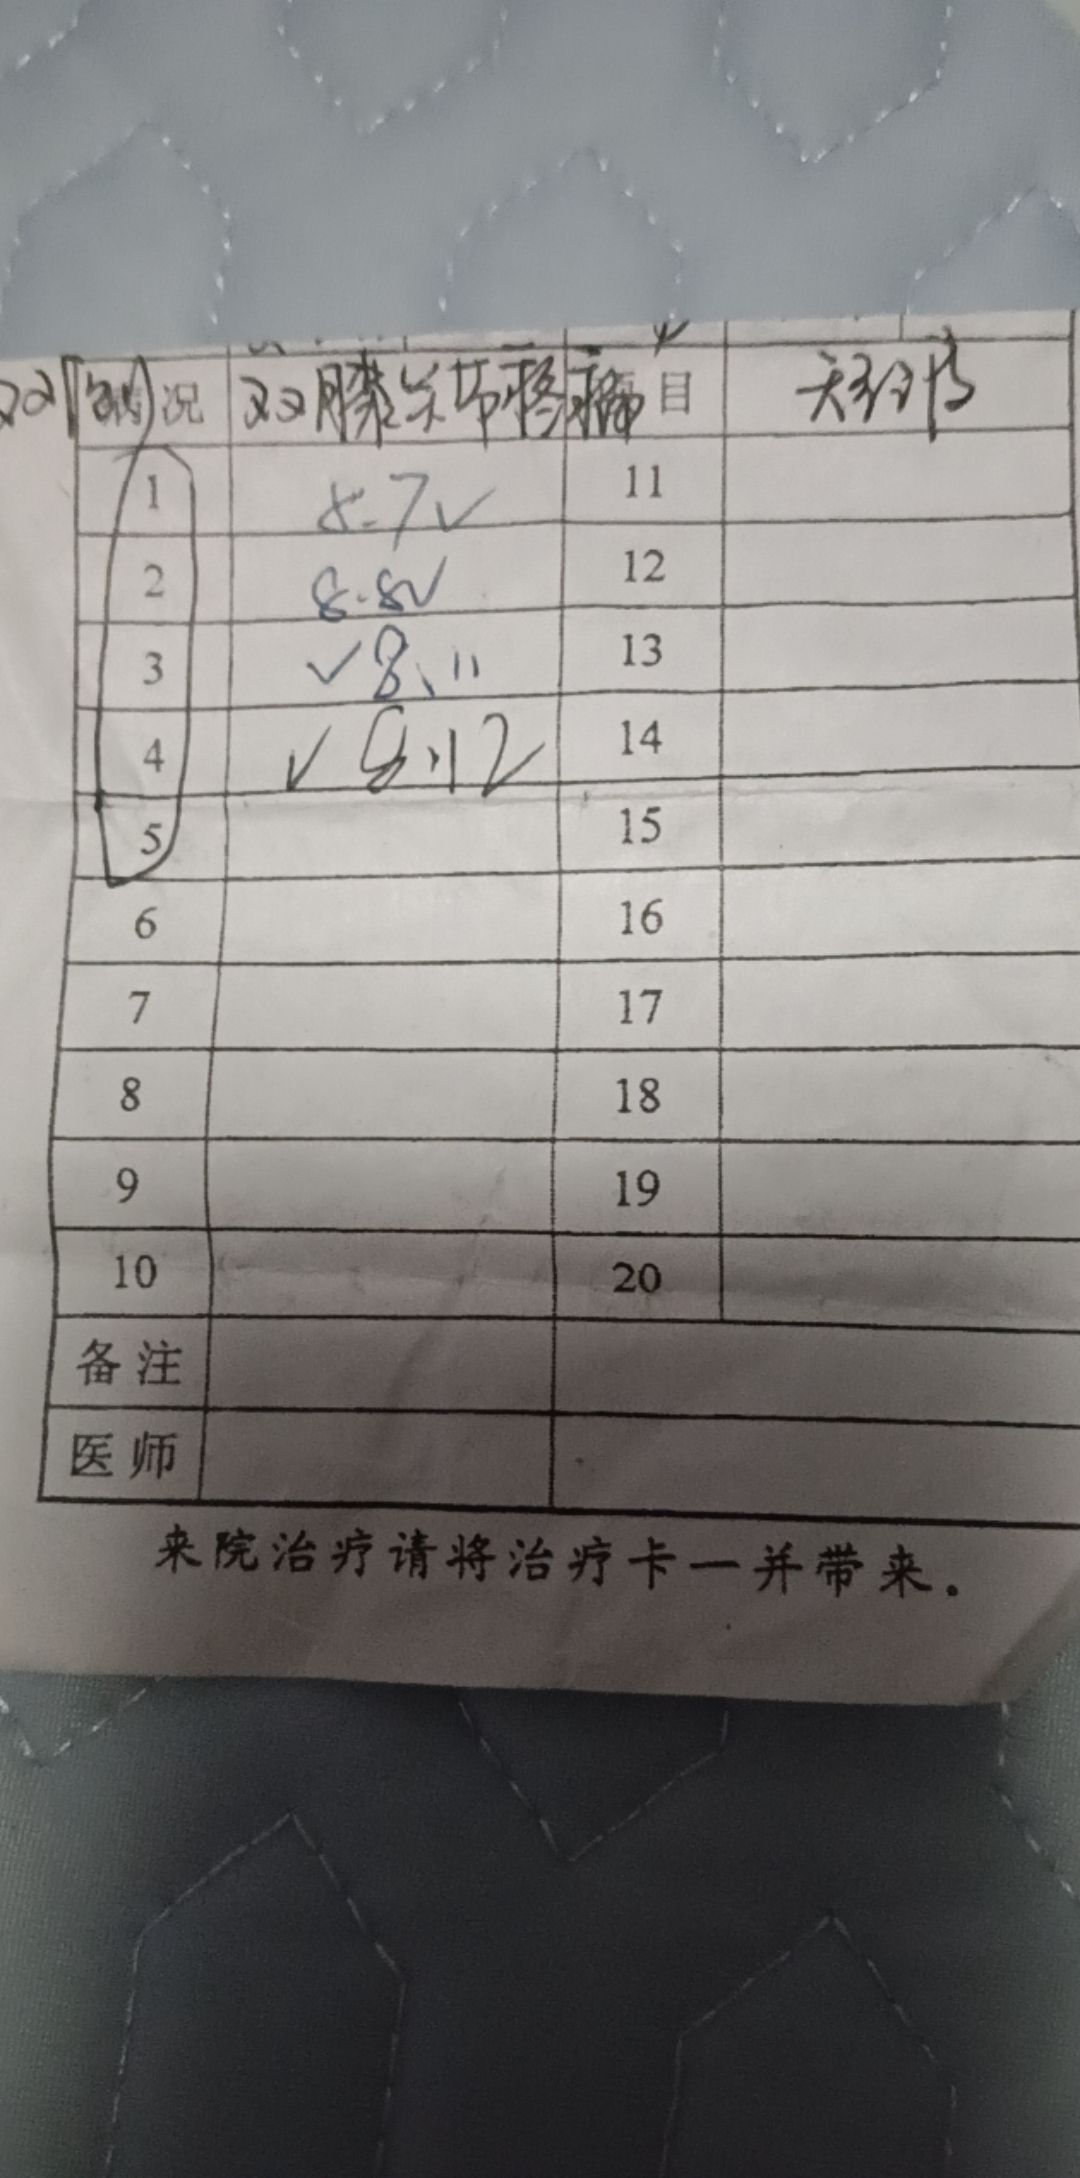 双 况 双膝关节疼痛 目
1 8.7✓ 11
2 8.8✓ 12
3 ✓8、11 13
4 ✓8.12 14
5 15
6 16
7 17
8 18
9 19
10 20
备注
医师
来院治疗请将治疗卡一并带来.